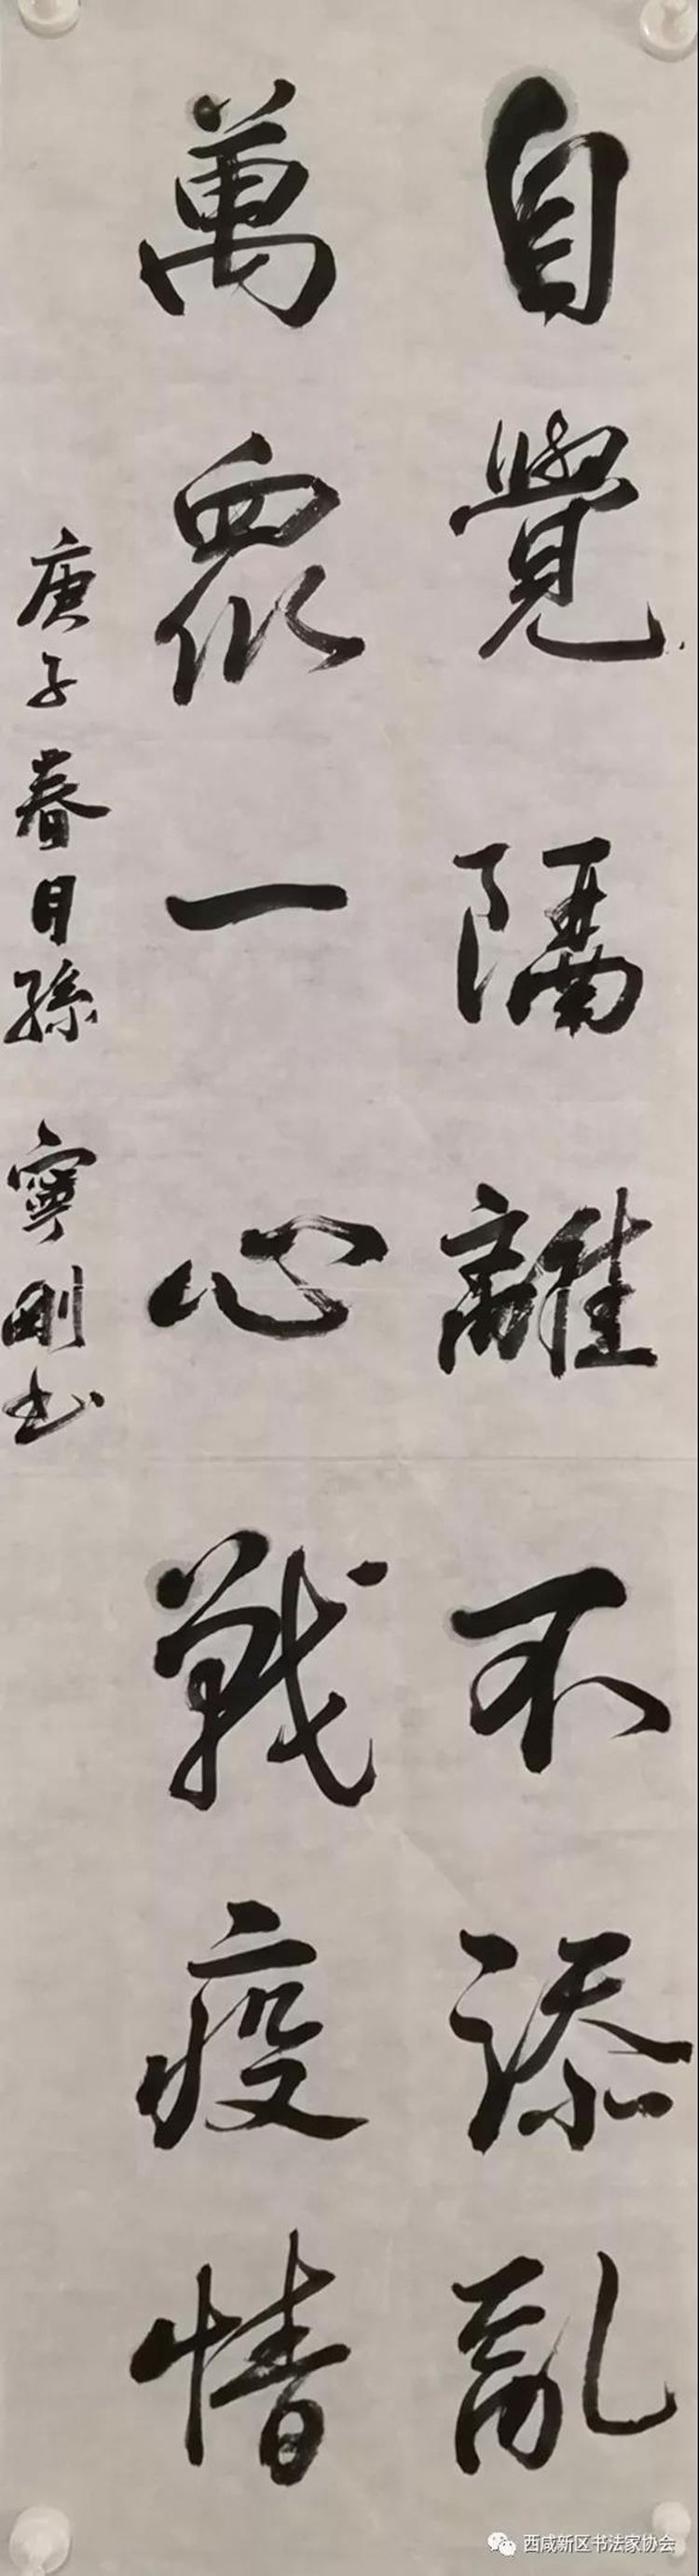 自覺隔離不添亂
萬眾一心戰疫情
庚子春月孫寧剛書
西咸新区书法家协会